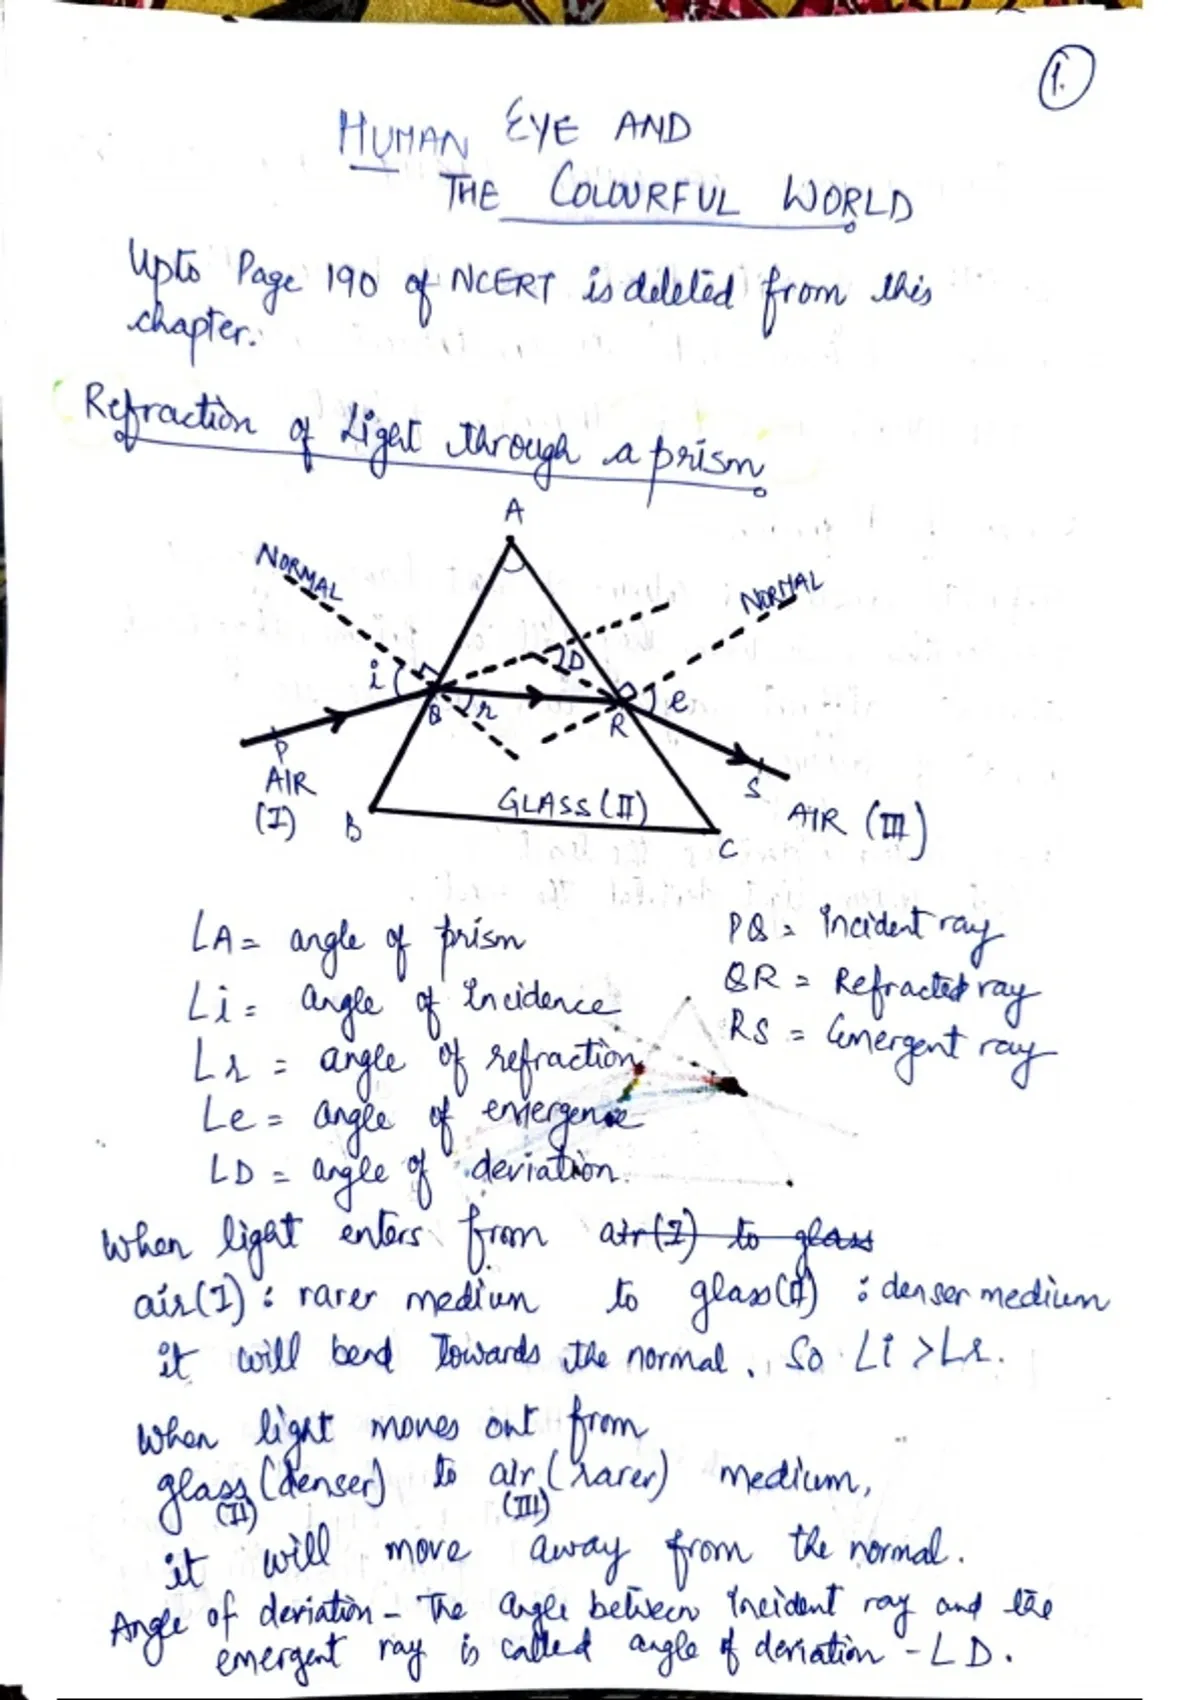 1.
HUMAN EYE AND
THE COLOURFUL WORLD
Upto Page 190 of NCERT is deleted from this
chapter.
Refraction of Light through a prism
A
NORMAL
NORMAL
i
D
e
Q
r
R
P
S
AIR
(I)
B
GLASS (II)
AIR (III)
C
∠A = angle of prism
∠i = angle of Incidence
∠r = angle of refraction
∠e = angle of emergence
∠D = angle of deviation.
PQ = Incident ray
QR = Refracted ray
RS = Emergent ray
When light enters from air(I) to glass
air(I) : rarer medium to glass(II) : denser medium
it will bend Towards the normal. So ∠i > ∠r.
When light moves out from
glass (denser) to air (rarer) medium,
(II) (III)
it will move away from the normal.
Angle of deviation - The angle between Incident ray and the
emergent ray is called angle of deviation - ∠D.